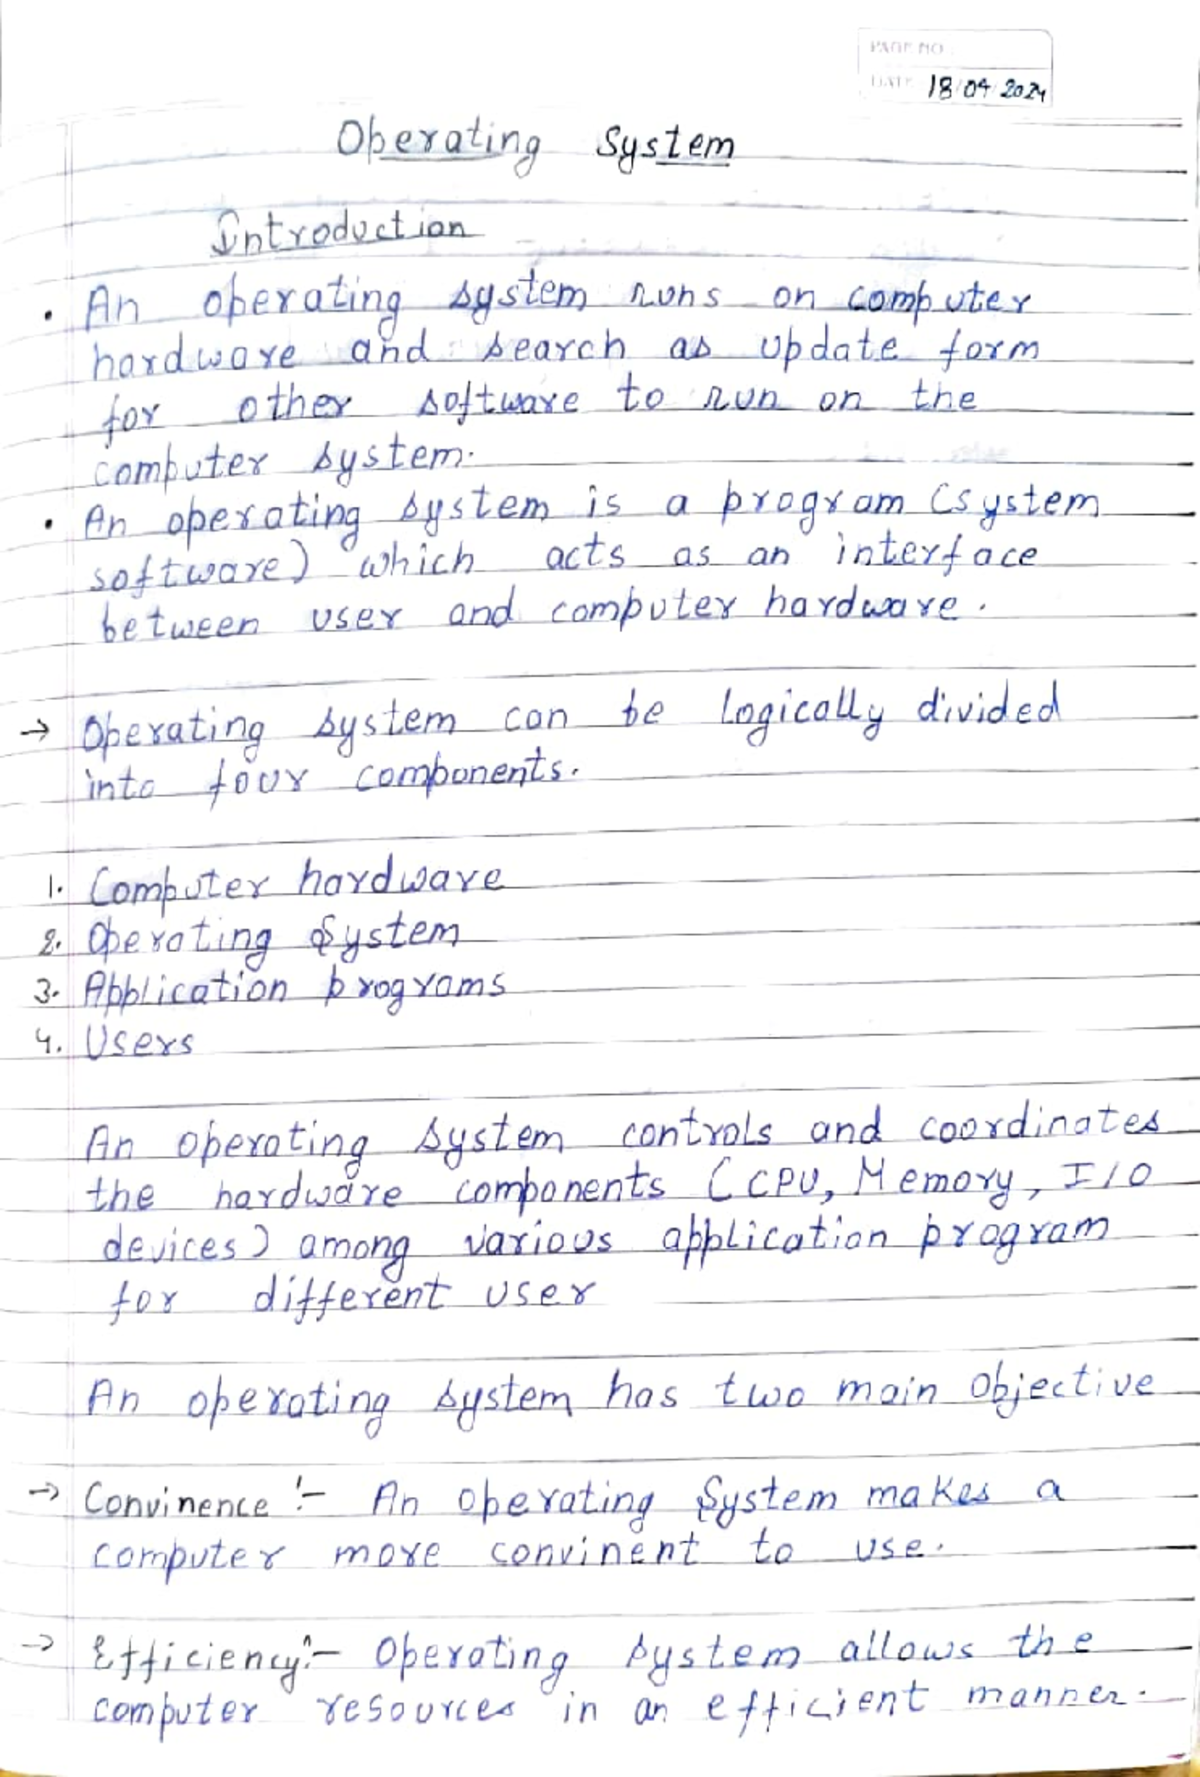 PAGE NO :
DATE 18/04/2024
Operating System
Introduction
• An operating system runs on computer
hardware and search as update form
for other software to run on the
computer system.
• An operating system is a program (system
software) which acts as an interface
between user and computer hardware.
→ Operating system can be logically divided
into four components.
1. Computer hardware
2. Operating System
3. Application programs
4. Users
An operating system controls and coordinates
the hardware components (CPU, Memory, I/O
devices) among various application program
for different user
An operating system has two main Objective
→ Convinence :- An operating System makes a
computer more convinent to use.
→ Efficiency:- Operating system allows the
computer resources in an efficient manner.